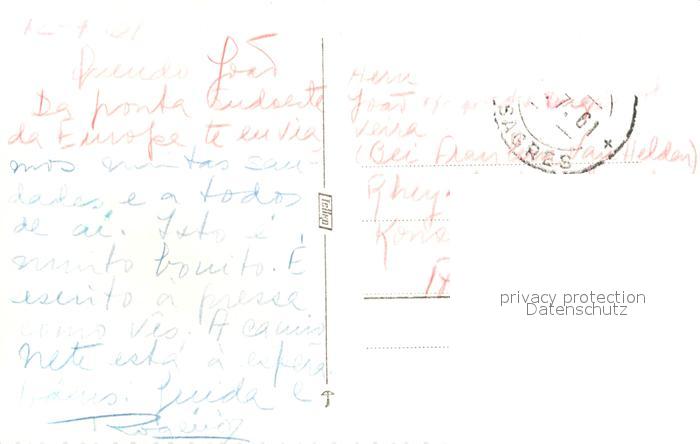 Querido João
Da ponta sudoeste
da Europa te envia
mos muitas sau-
dades e a todos
de aí. Isto é
muito bonito. É
escrito à pressa
como vês. A camio
nete está à espera
Guida e
Rogério
Herrn
João
(Bei Frau van Helden)
Rhey.
SAGRES
61
privacy protection
Datenschutz